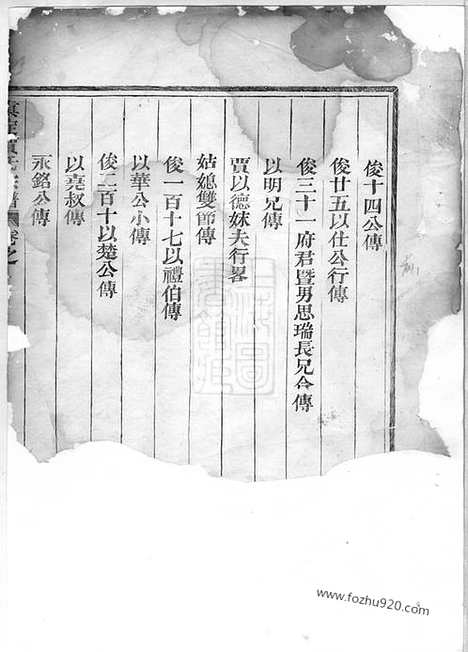 俊十四公傳
俊廿五以仕公行傳
俊三十一府君暨男思瑞長兄合傳
以明兄傳
賈以德妹夫行畧
姑媳雙節傳
俊一百十七以禮伯傳
以華公小傳
俊二百十以楚公傳
以堯叔傳
永銘公傳
賈氏宗譜 卷之一
www.fozhu920.com